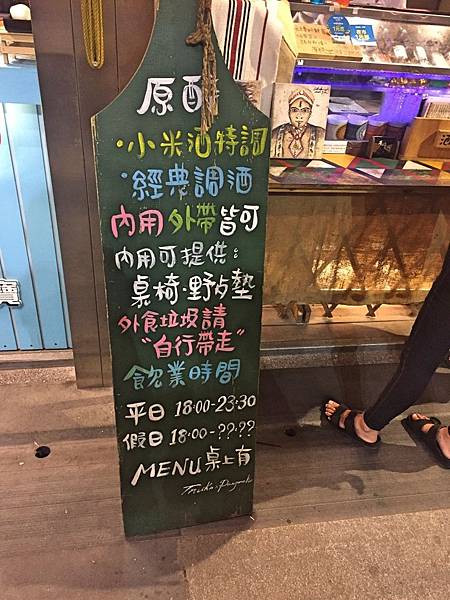 原酉
·小米酒特調
·經典調酒
內用外帶皆可
內用可提供:
桌椅·野占墊
外食垃圾請
"自行帶走"
飲業時間
平日 18:00-23:30
假日 18:00-??:??
MENU桌上有